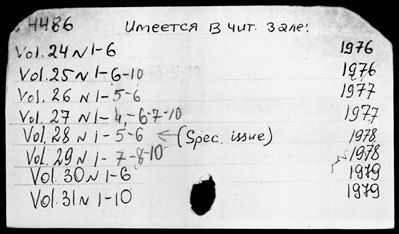 4486 Имеется в чит. зале:
Vol. 24 N 1-6 1976
Vol. 25 N 1-6-10 1976
Vol. 26 N 1-5-6 1977
Vol. 27 N 1-4,-6-7-10 1977
Vol. 28 N 1-5-6 ← (Spec. issue) 1978
Vol. 29 N 1-7-8-10 1978
Vol. 30 N 1-6 1979
Vol. 31 N 1-10 1979